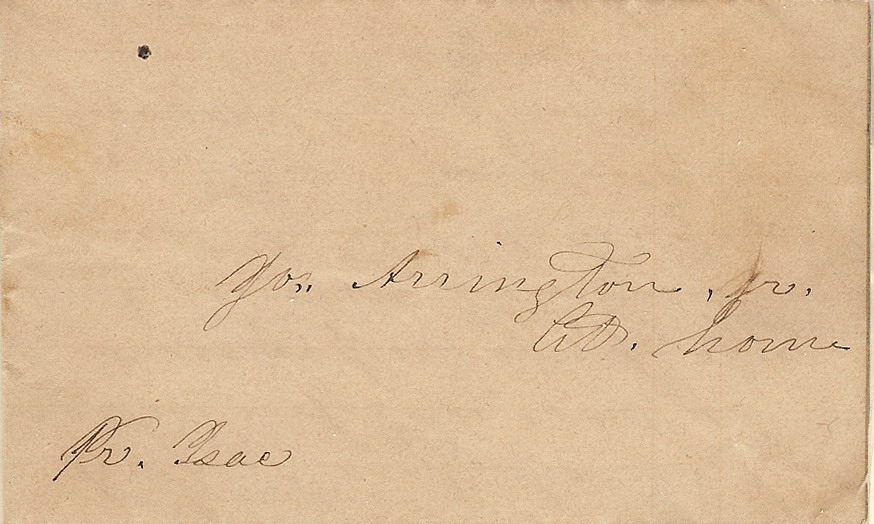 Jos. Arrington, jr.
At. home
Pr. Isac